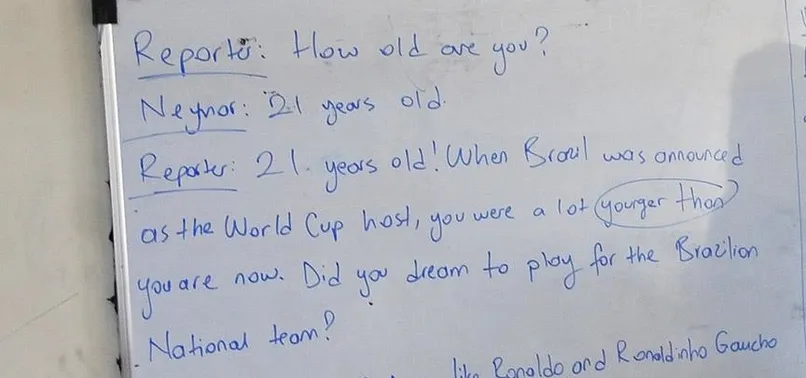 Reporter: How old are you?
Neymar: 21 years old.
Reporter: 21. years old! When Brazil was announced
as the World Cup host, you were a lot younger than
you are now. Did you dream to play for the Brazilian
National team?
like Ronaldo and Ronaldinho Gaucho